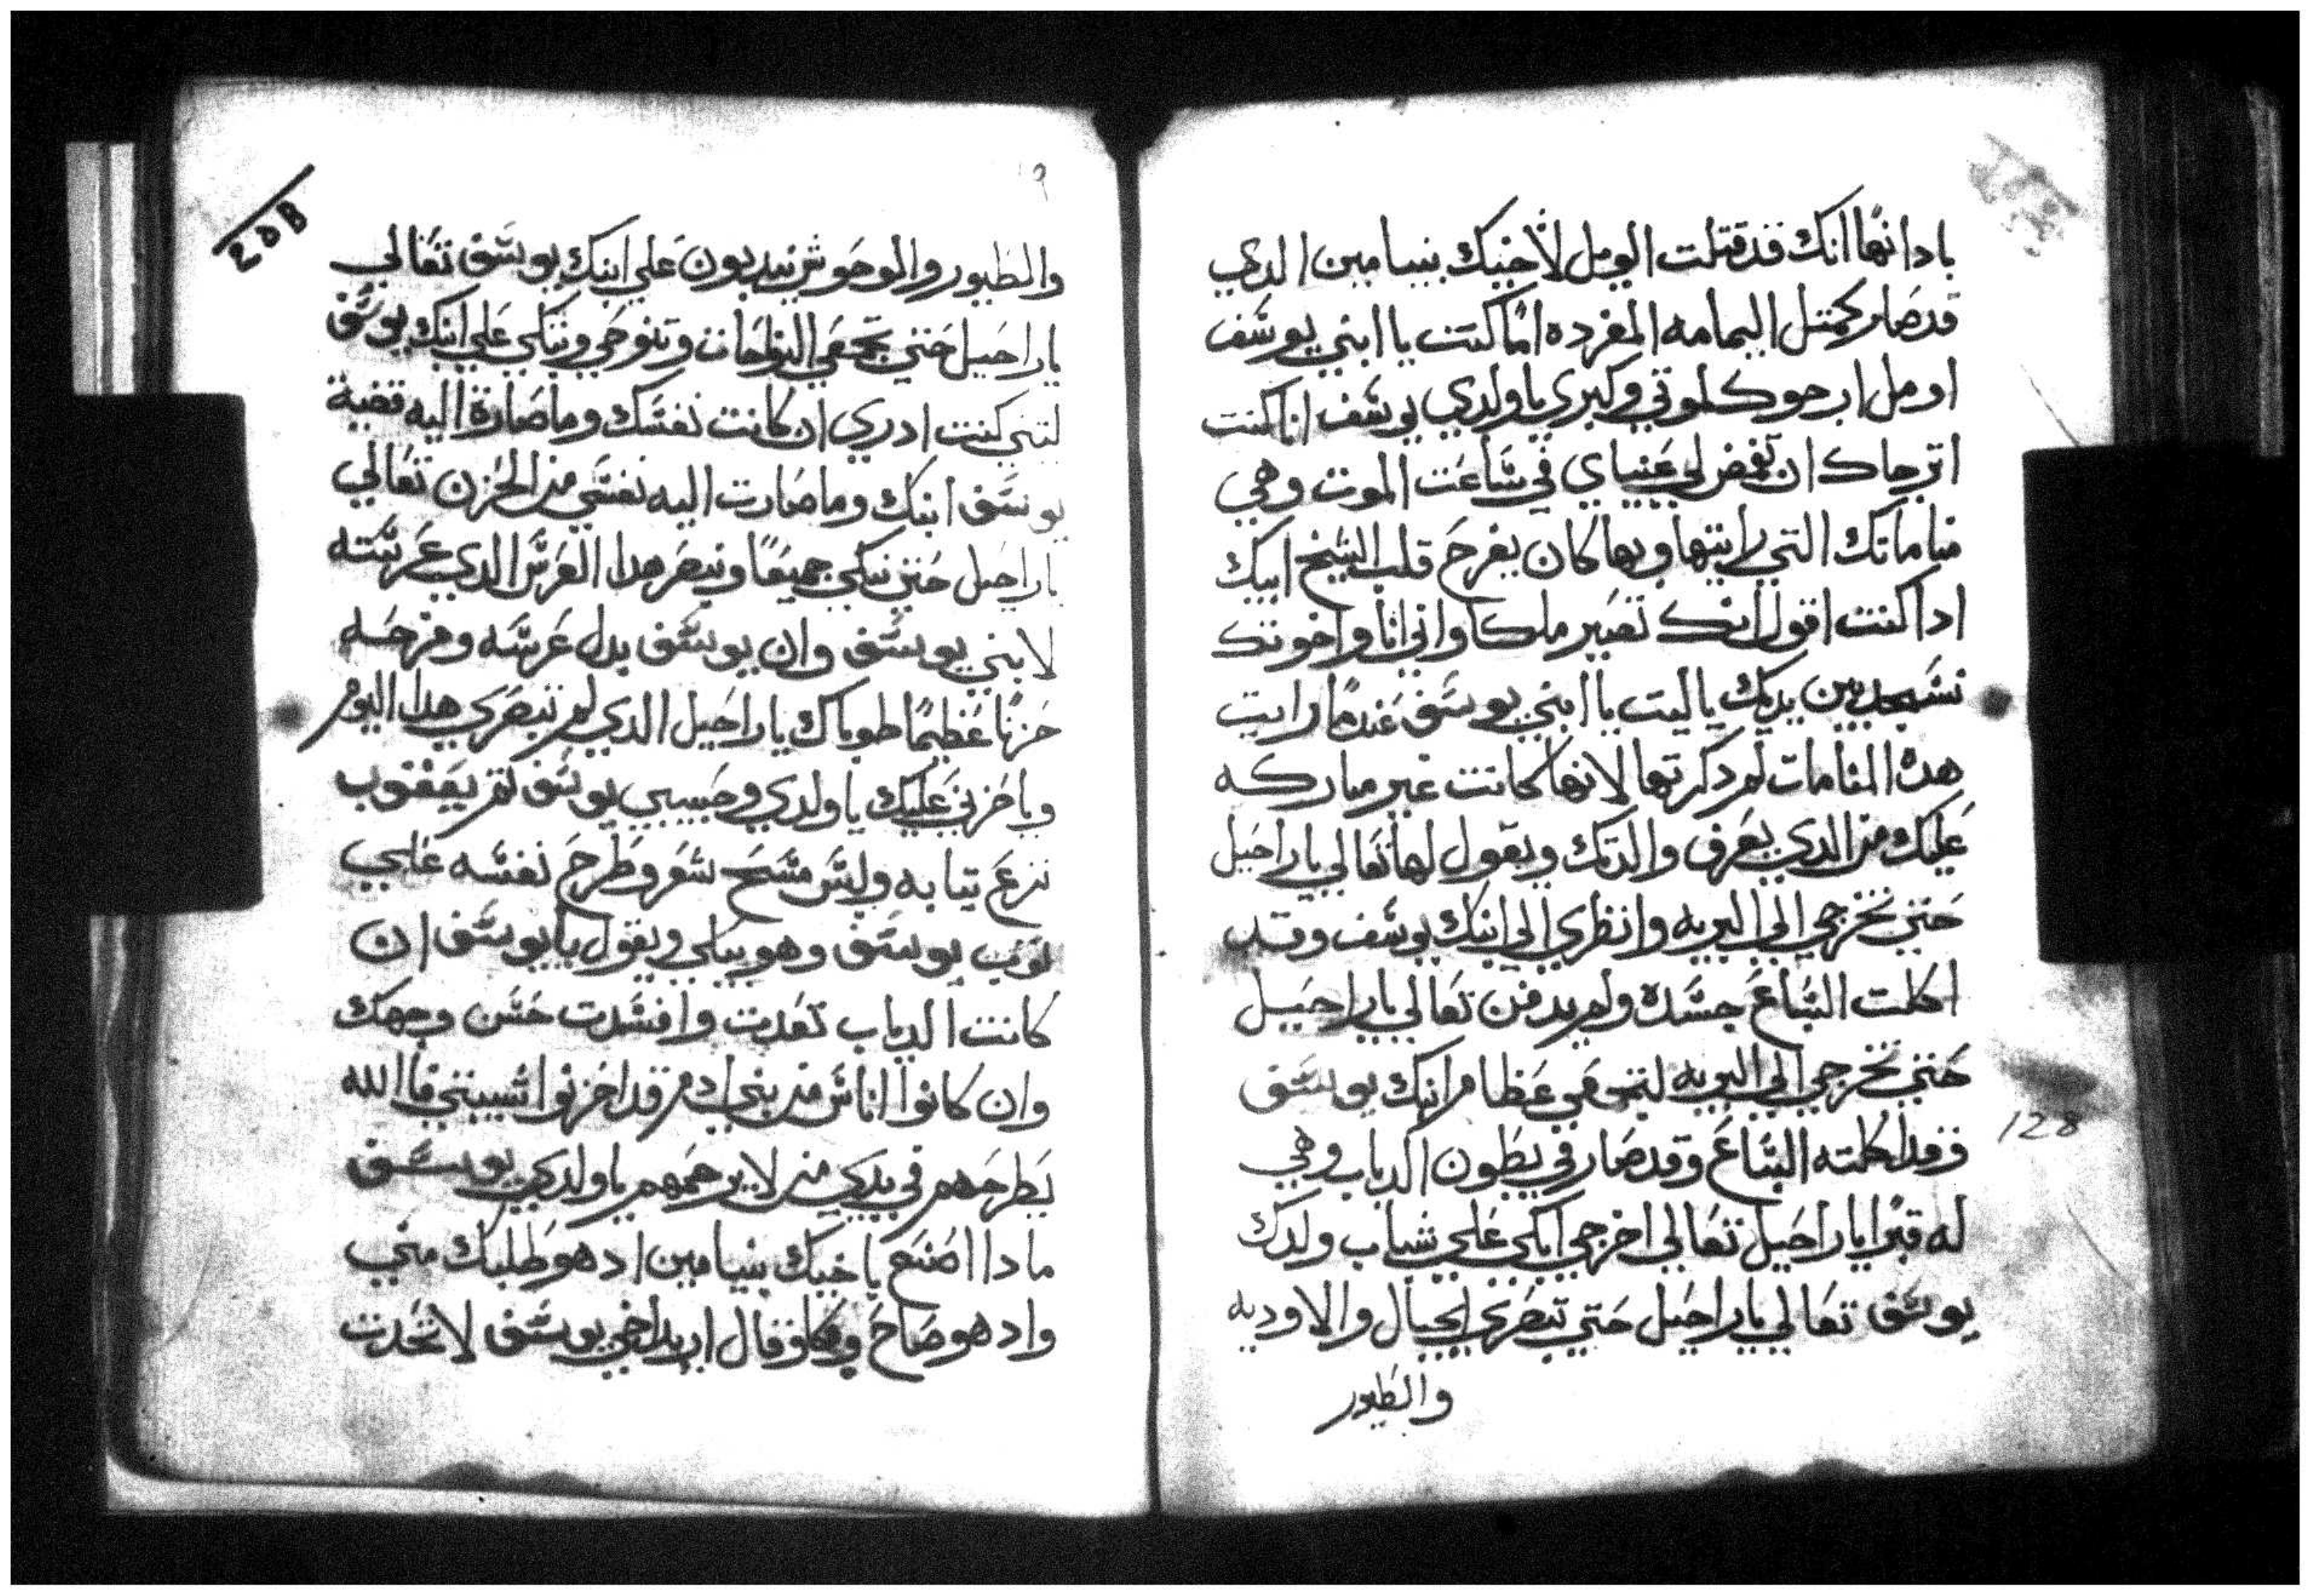 يا دا انها انك قد قتلت اليوم لاخيك بنيامين الدي
قد صار كمتل اليمامه المفرده انا كنت يا ابني يوسف
اومل ارجوك لموتي وكبري يا ولدي يوسف انا كنت
اترجاك ان تغمض لي عنياي في ساعت الموت وهي
مناماتك التي رايتها وبها كان يفرح قلب الشيخ ابيك
ادا كنت اقول انك تصير ملكا واني انا واخوتك
نسجد بين يديك ياليت يا ابني يوسف عندما رايت
هده المنامات لم دكرتها لانها كانت غير مباركه
عليك من الدي يعرف والدتك ويقول لها تعالي يا راحيل
حتي تخرجي الي البريه وانظري الي ابنك يوسف وقد
اكلت السباع جسده ولم يدفن تعالي يا راحيل
حتي تخرجي الي البريه لتجمعي عظام ابنك يوسف
فقد اكلته السباع وقد صار في بطون الدياب وهي
له قبرا يا راحيل تعالي اخرجي ابكي علي شباب ولدك
يوسف تعالي يا راحيل حتي تبصري الجبال والاوديه
والطيور
128
20B
٩
والطيور والوحوش يندبون علي ابنك يوسف تعالي
يا راحيل حتي تجمعي النواحات وتنوحي وتبكي علي ابنك يوسف
ليتني كنت ادري ان كانت نفسك وما صارة اليه قضية
يوسف ابنك وما صارت اليه نفسي من الحزن تعالي
يا راحيل حتي نبكي جميعا ونبصر هدا العرس الدي عرسته
لابني يوسف وان يوسف بدل عرسه وفرحه
حزنا عظيما طوباك يا راحيل الدي لم تبصري هدا اليوم
ويا حزني عليك يا ولدي وحبيبي يوسف تم يعقوب
نزع تيابه ولبس مسح شعر وطرح نفسه علي
توب يوسف وهو يبكي ويقول يا يوسف ان
كانت الدياب تعدت وافسدت حسن وجهك
وان كانوا اناس من بني ادم قد احزنوا شيبتي فا الله
يطرحهم في يدي من لا يرحمهم يا ولدي يوسف
مادا اصنع باخيك بنيامين اد هو طلبك مني
واد هو صاح وبكا وقال اريد اخي يوسف لا تحدت